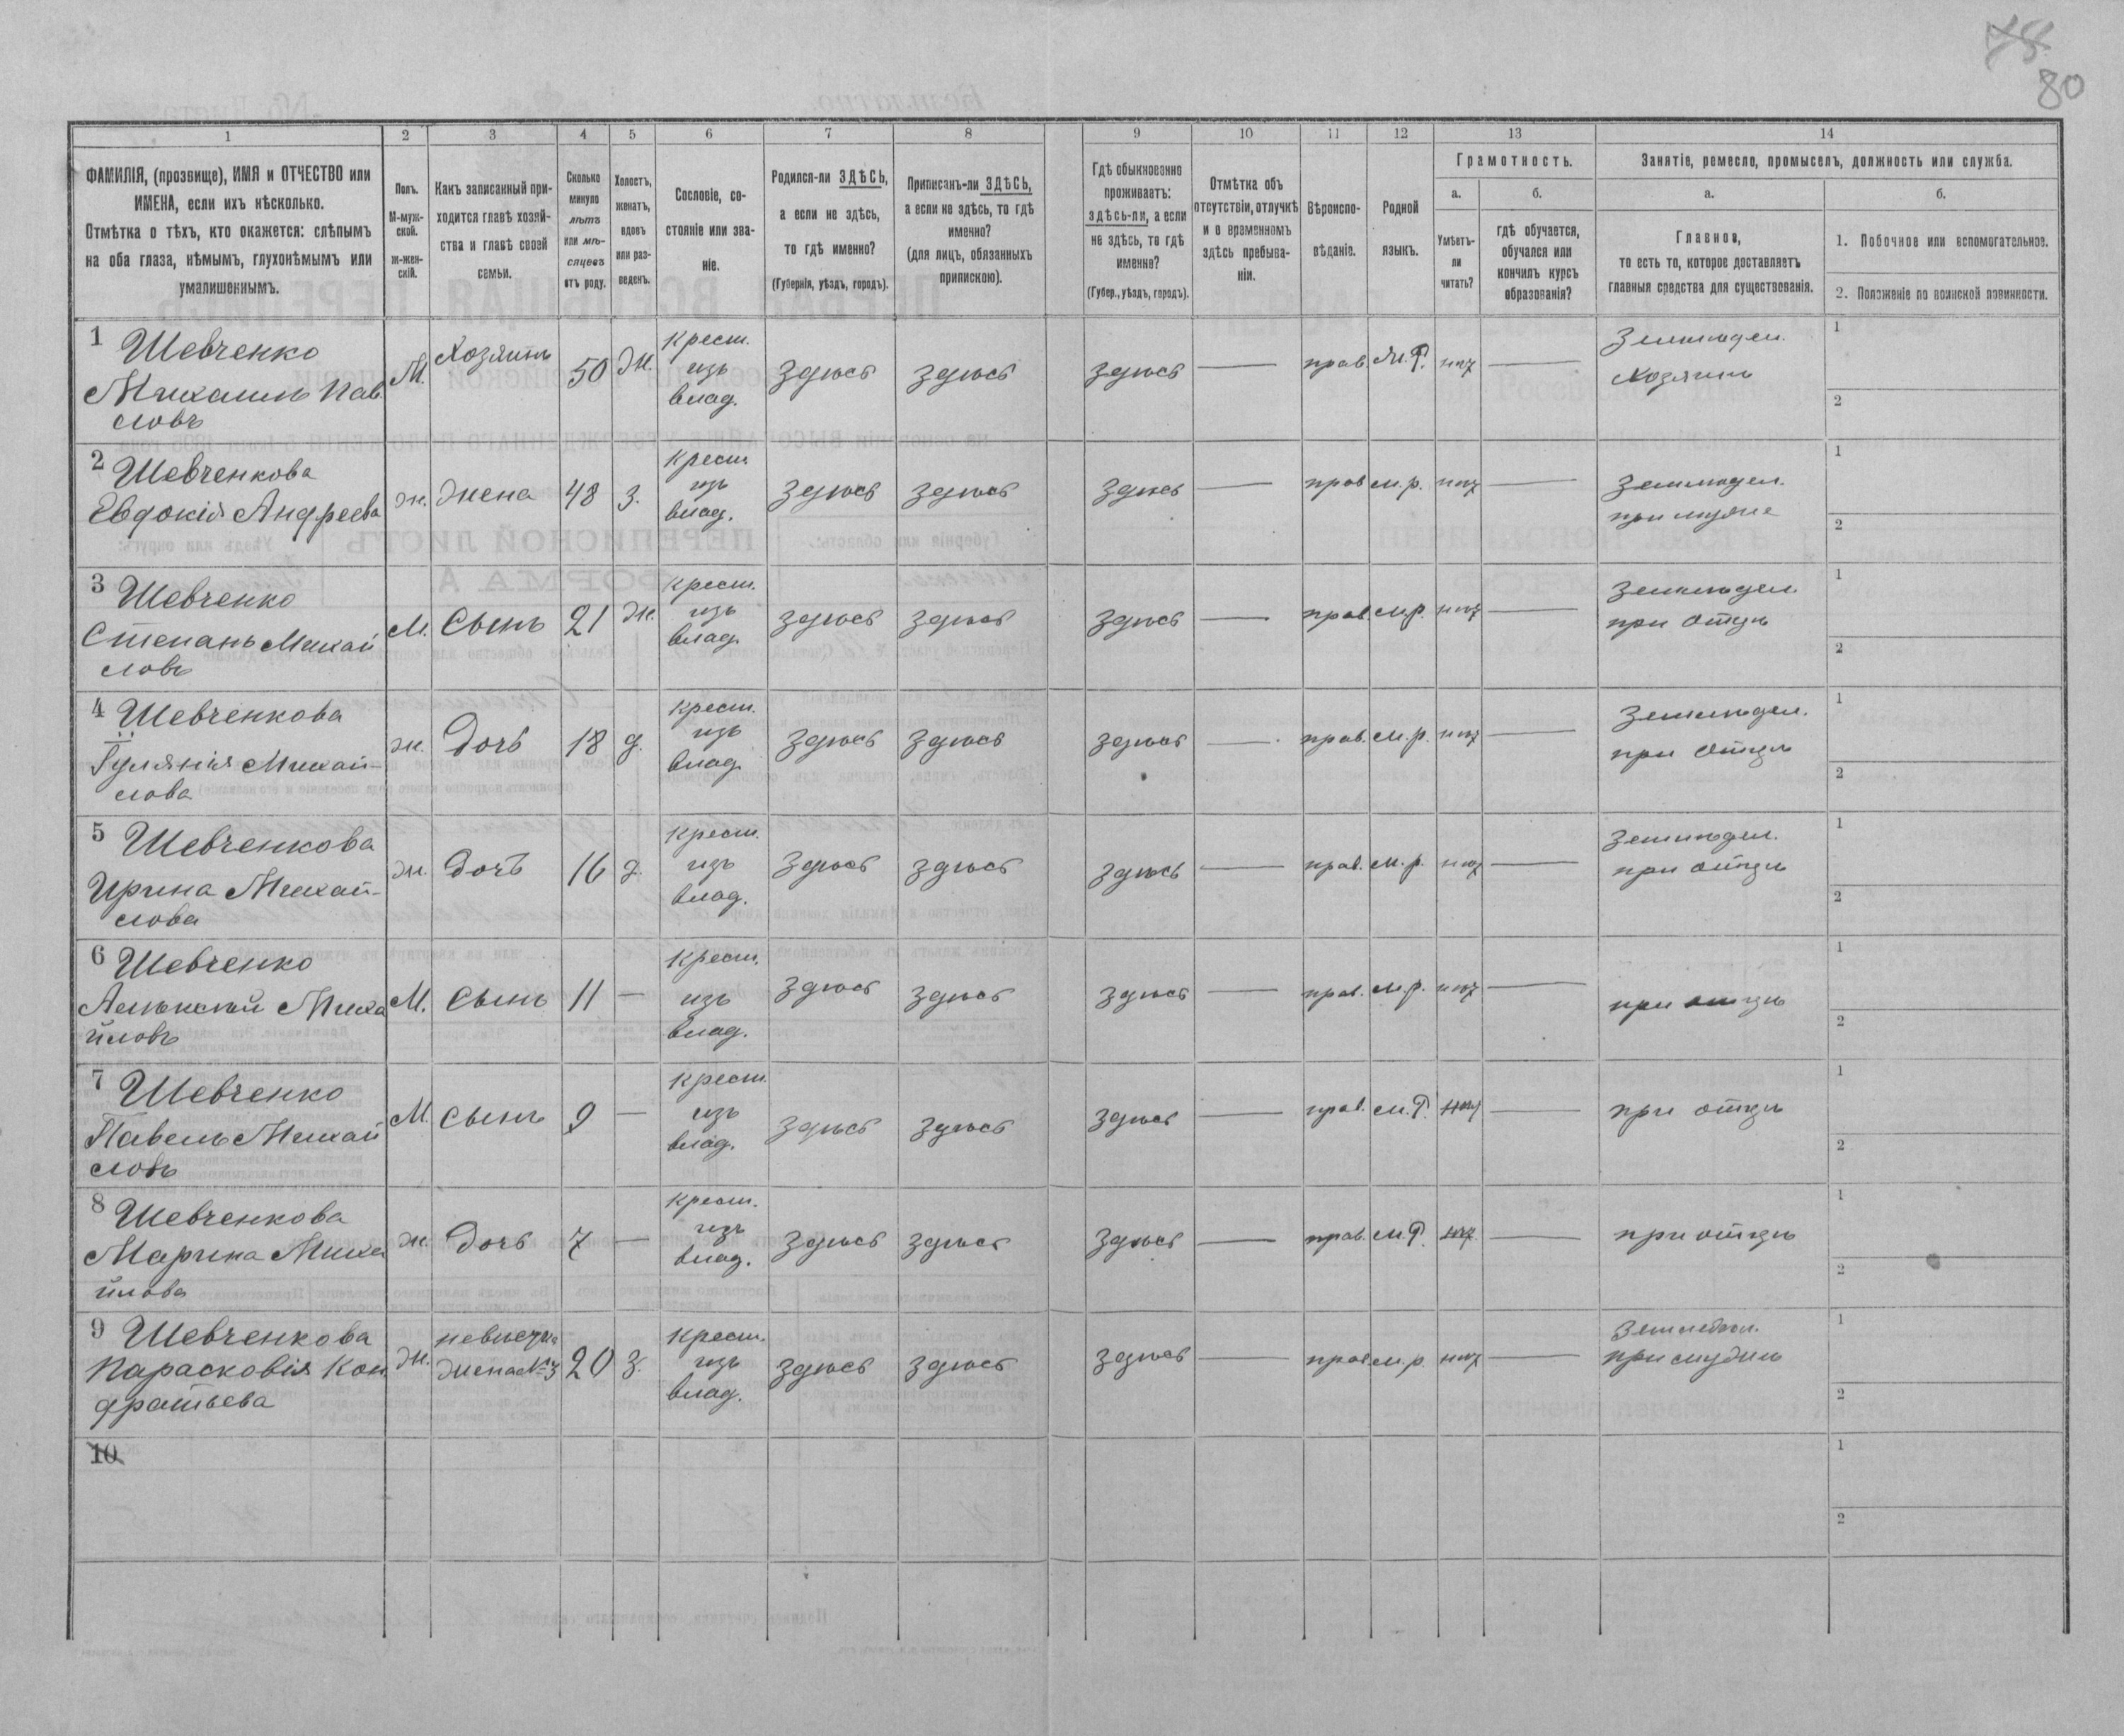 78
80
1 2 3 4 5 6 7 8 9 10 11 12 13 14
ФАМИЛІЯ, (прозвище), ИМЯ и ОТЧЕСТВО или
ИМЕНА, если ихъ нѣсколько.
Отмѣтка о тѣхъ, кто окажется: слѣпымъ
на оба глаза, нѣмымъ, глухонѣмымъ или
умалишеннымъ.
Полъ.
М-муж-
ской.
ж-жен-
скій.
Какъ записанный при-
ходится главѣ хозяй-
ства и главѣ своей
семьи.
Сколько
минуло
лѣтъ
или мѣ-
сяцевъ
отъ роду.
Холостъ,
женатъ,
вдовъ
или раз-
веденъ.
Сословіе, со-
стояніе или зва-
ніе.
Родился-ли ЗДѢСЬ,
а если не здѣсь,
то гдѣ именно?
(Губернія, уѣздъ, городъ).
Приписанъ-ли ЗДѢСЬ,
а если не здѣсь, то гдѣ
именно?
(для лицъ, обязанныхъ
припискою).
Гдѣ обыкновенно
проживаетъ:
здѣсь-ли, а если
не здѣсь, то гдѣ
именно?
(Губер., уѣздъ, городъ).
Отмѣтка объ
отсутствіи, отлучкѣ
и о временномъ
здѣсь пребыва-
ніи.
Вѣроиспо-
вѣданіе.
Родной
языкъ.
Грамотность.
а.
Умѣетъ-
ли
читать?
б.
гдѣ обучается,
обучался или
кончилъ курсъ
образованія?
Занятіе, ремесло, промыселъ, должность или служба.
а.
Главное,
то есть то, которое доставляетъ
главныя средства для существованія.
б.
1. Побочное или вспомогательное.
2. Положеніе по воинской повинности.
1 Шевченко
Михаилъ Пав
ловъ
М.
Хозяинъ
50
Ж.
Крест.
изъ
влад.
здѣсь
здѣсь
здѣсь
прав.
М.Р.
нѣт
Земледел.
Хозяинъ
1
2
2 Шевченкова
Евдокія Андреева
ж.
жена
48
з.
Крест.
изъ
влад.
здѣсь
здѣсь
здѣсь
прав
м.р.
нѣт
земледел.
при мужѣ
1
2
3 Шевченко
Степанъ Михай
ловъ
М.
Сынъ
21
Ж.
Крест.
изъ
влад.
здѣсь
здѣсь
здѣсь
прав.
м.р.
нѣт
Земледел.
при отцѣ
1
2
4 Шевченкова
Іуліянія Михай-
лова
ж.
Дочь
18
д.
Крест.
изъ
влад.
здѣсь
здѣсь
здѣсь
прав.
м.р.
нѣт
Земледел.
при отцѣ
1
2
5 Шевченкова
Ирина Михай-
лова
ж.
Дочь
16
д.
Крест.
изъ
влад.
здѣсь
здѣсь
здѣсь
прав.
м.р.
нѣт
Земледел.
при отцѣ
1
2
6 Шевченко
Алексѣй Миха
йловъ
М.
Сынъ
11
Крест.
изъ
влад.
здѣсь
здѣсь
здѣсь
прав.
м.р.
нѣт
при отцѣ
1
2
7 Шевченко
Павелъ Михай
ловъ
М.
Сынъ
9
Крест.
изъ
влад.
здѣсь
здѣсь
здѣсь
прав.
м.Р.
нѣт
при отцѣ
1
2
8 Шевченкова
Марина Миха
йлова
ж.
Дочь
7
Крест.
изъ
влад.
здѣсь
здѣсь
здѣсь
прав.
м.Р.
нѣт
при отцѣ
1
2
9 Шевченкова
Парасковія Кон
дратьева
ж.
невѣстка
жена №3
20
з.
Крест.
изъ
влад.
здѣсь
здѣсь
здѣсь
прав
м.р.
нѣт
Земледел.
при мужѣ
1
2
10
1
2